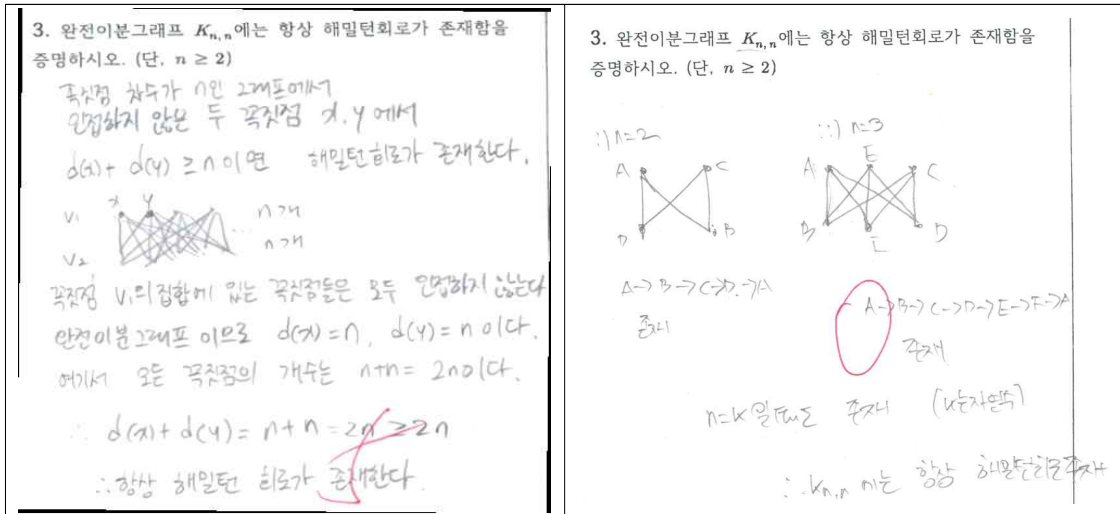 3. 완전이분그래프 K_{n,n}에는 항상 해밀턴회로가 존재함을
증명하시오. (단, n ≥ 2)
꼭짓점 차수가 n인 그래프에서
인접하지 않은 두 꼭짓점 x, y 에서
d(x) + d(y) ≥ n 이면 해밀턴 회로가 존재한다.
x y
V₁ n개
V₂ n개
꼭짓점 V₁의 집합에 있는 꼭짓점들은 모두 인접하지 않는다
완전이분그래프 이므로 d(x) = n, d(y) = n 이다.
여기서 모든 꼭짓점의 개수는 n+n = 2n이다.
∴ d(x) + d(y) = n + n = 2n ≥ 2n
∴ 항상 해밀턴 회로가 존재한다.
3. 완전이분그래프 K_{n,n}에는 항상 해밀턴회로가 존재함을
증명하시오. (단, n ≥ 2)
i) n=2 ii) n=3
A C A E C
D B B D
A→B→C→D→A
존재
A→B→C→D→E→F→A
존재
n=k 일 때도 존재 (k는자연수)
∴ K_{n,n} 에는 항상 해밀턴회로존재